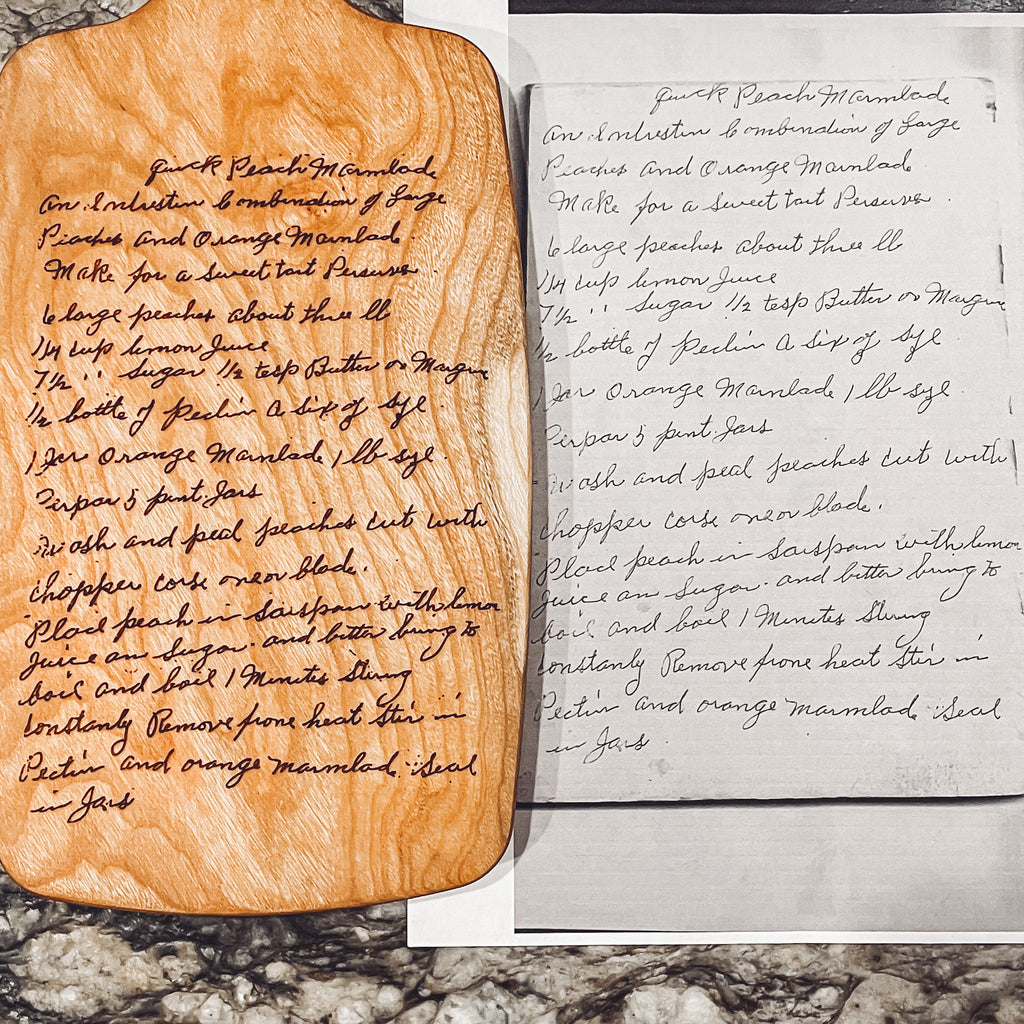 quick Peach Marmlade
An Intrestin Combination of Large
Peaches and Orange Marmlad
Make for a sweet tart Perserves
6 large peaches about three lb
1/4 cup lemon Juice
7 1/2 '' Sugar 1/2 tesp Butter or Margine
1/2 bottle of Pectin a six oz sye
1 Jar Orange Marmlade 1 lb sye
Perpar 5 pint Jars
Wash and peal peaches cut with
chopper corse on blade.
Place peach in Saispan with lemon
Juice an Sugar and bitter bring to
boil and boil 1 Minutes Stiring
constanly Remove frone heat Stir in
Pectin and orange marmlad Seal
in Jars
quick Peach Marmlade
An Intrestin Combination of Large
Peaches and Orange Marmlad
Make for a sweet tart Perserves
6 large peaches about three lb
1/4 cup lemon Juice
7 1/2 '' Sugar 1/2 tesp Butter or Margine
1/2 bottle of Pectin a six oz sye
1 Jar Orange Marmlade 1 lb sye
Perpar 5 pint Jars
Wash and peal peaches cut with
chopper corse on blade.
Place peach in Saispan with lemon
Juice an Sugar and bitter bring to
boil and boil 1 Minutes Stiring
constanly Remove frone heat Stir in
Pectin and orange marmlad Seal
in Jars